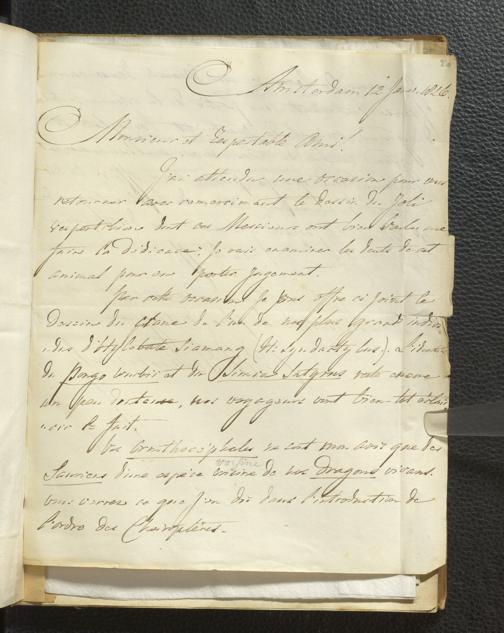 Amsterdam 12 Janv. 1826.
Monsieur et Respectable Ami!
J'ai attendu une occasion pour vous
retourner avec remerciment le dessin du joli
Vespertilion dont ces Messieurs ont bien voulu me
faire la Dédicace; je vais examiner les dents de cet
animal pour en porter jugement.
Par cette occasion je vous offre ci joint le
Dessin du crane de l'un de nos plus grand indivi
-dus d'Hylobate Siamang (H. syndactylus). L'identité
du Pongo wurbii et du Simia Satyrus reste encore
un peu, nos voyageurs vont bien tot éclair
-cir le fait.
Vos Ornithocéphales ne sont mon avis que des
Sauriens d'une espèce voisine de nos Dragons vivans.
voisine
vous verrez ce que j'en dis dans l'introduction de
l'ordre des Cheiroptères.